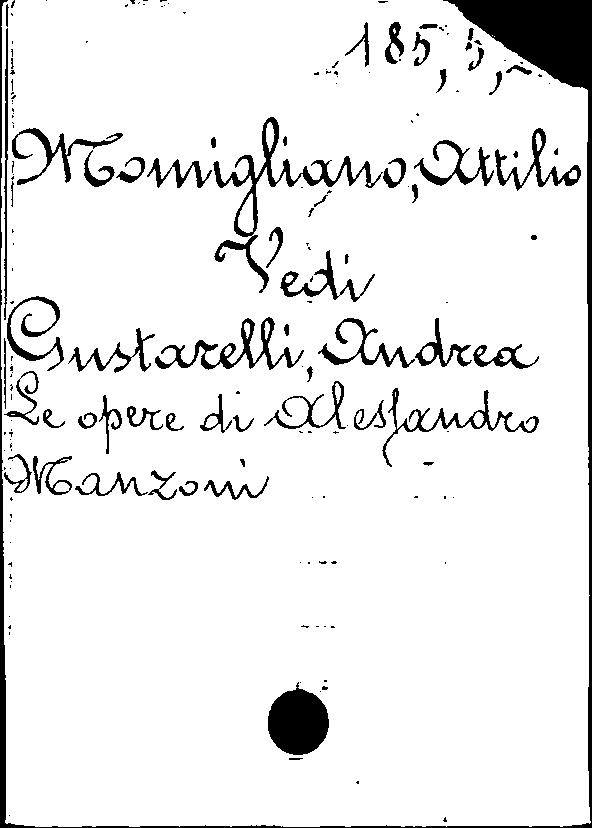 185, 5,-
Momigliano, Attilio
Vedi
Gustarelli, Andrea
Le opere di Alessandro
Manzoni